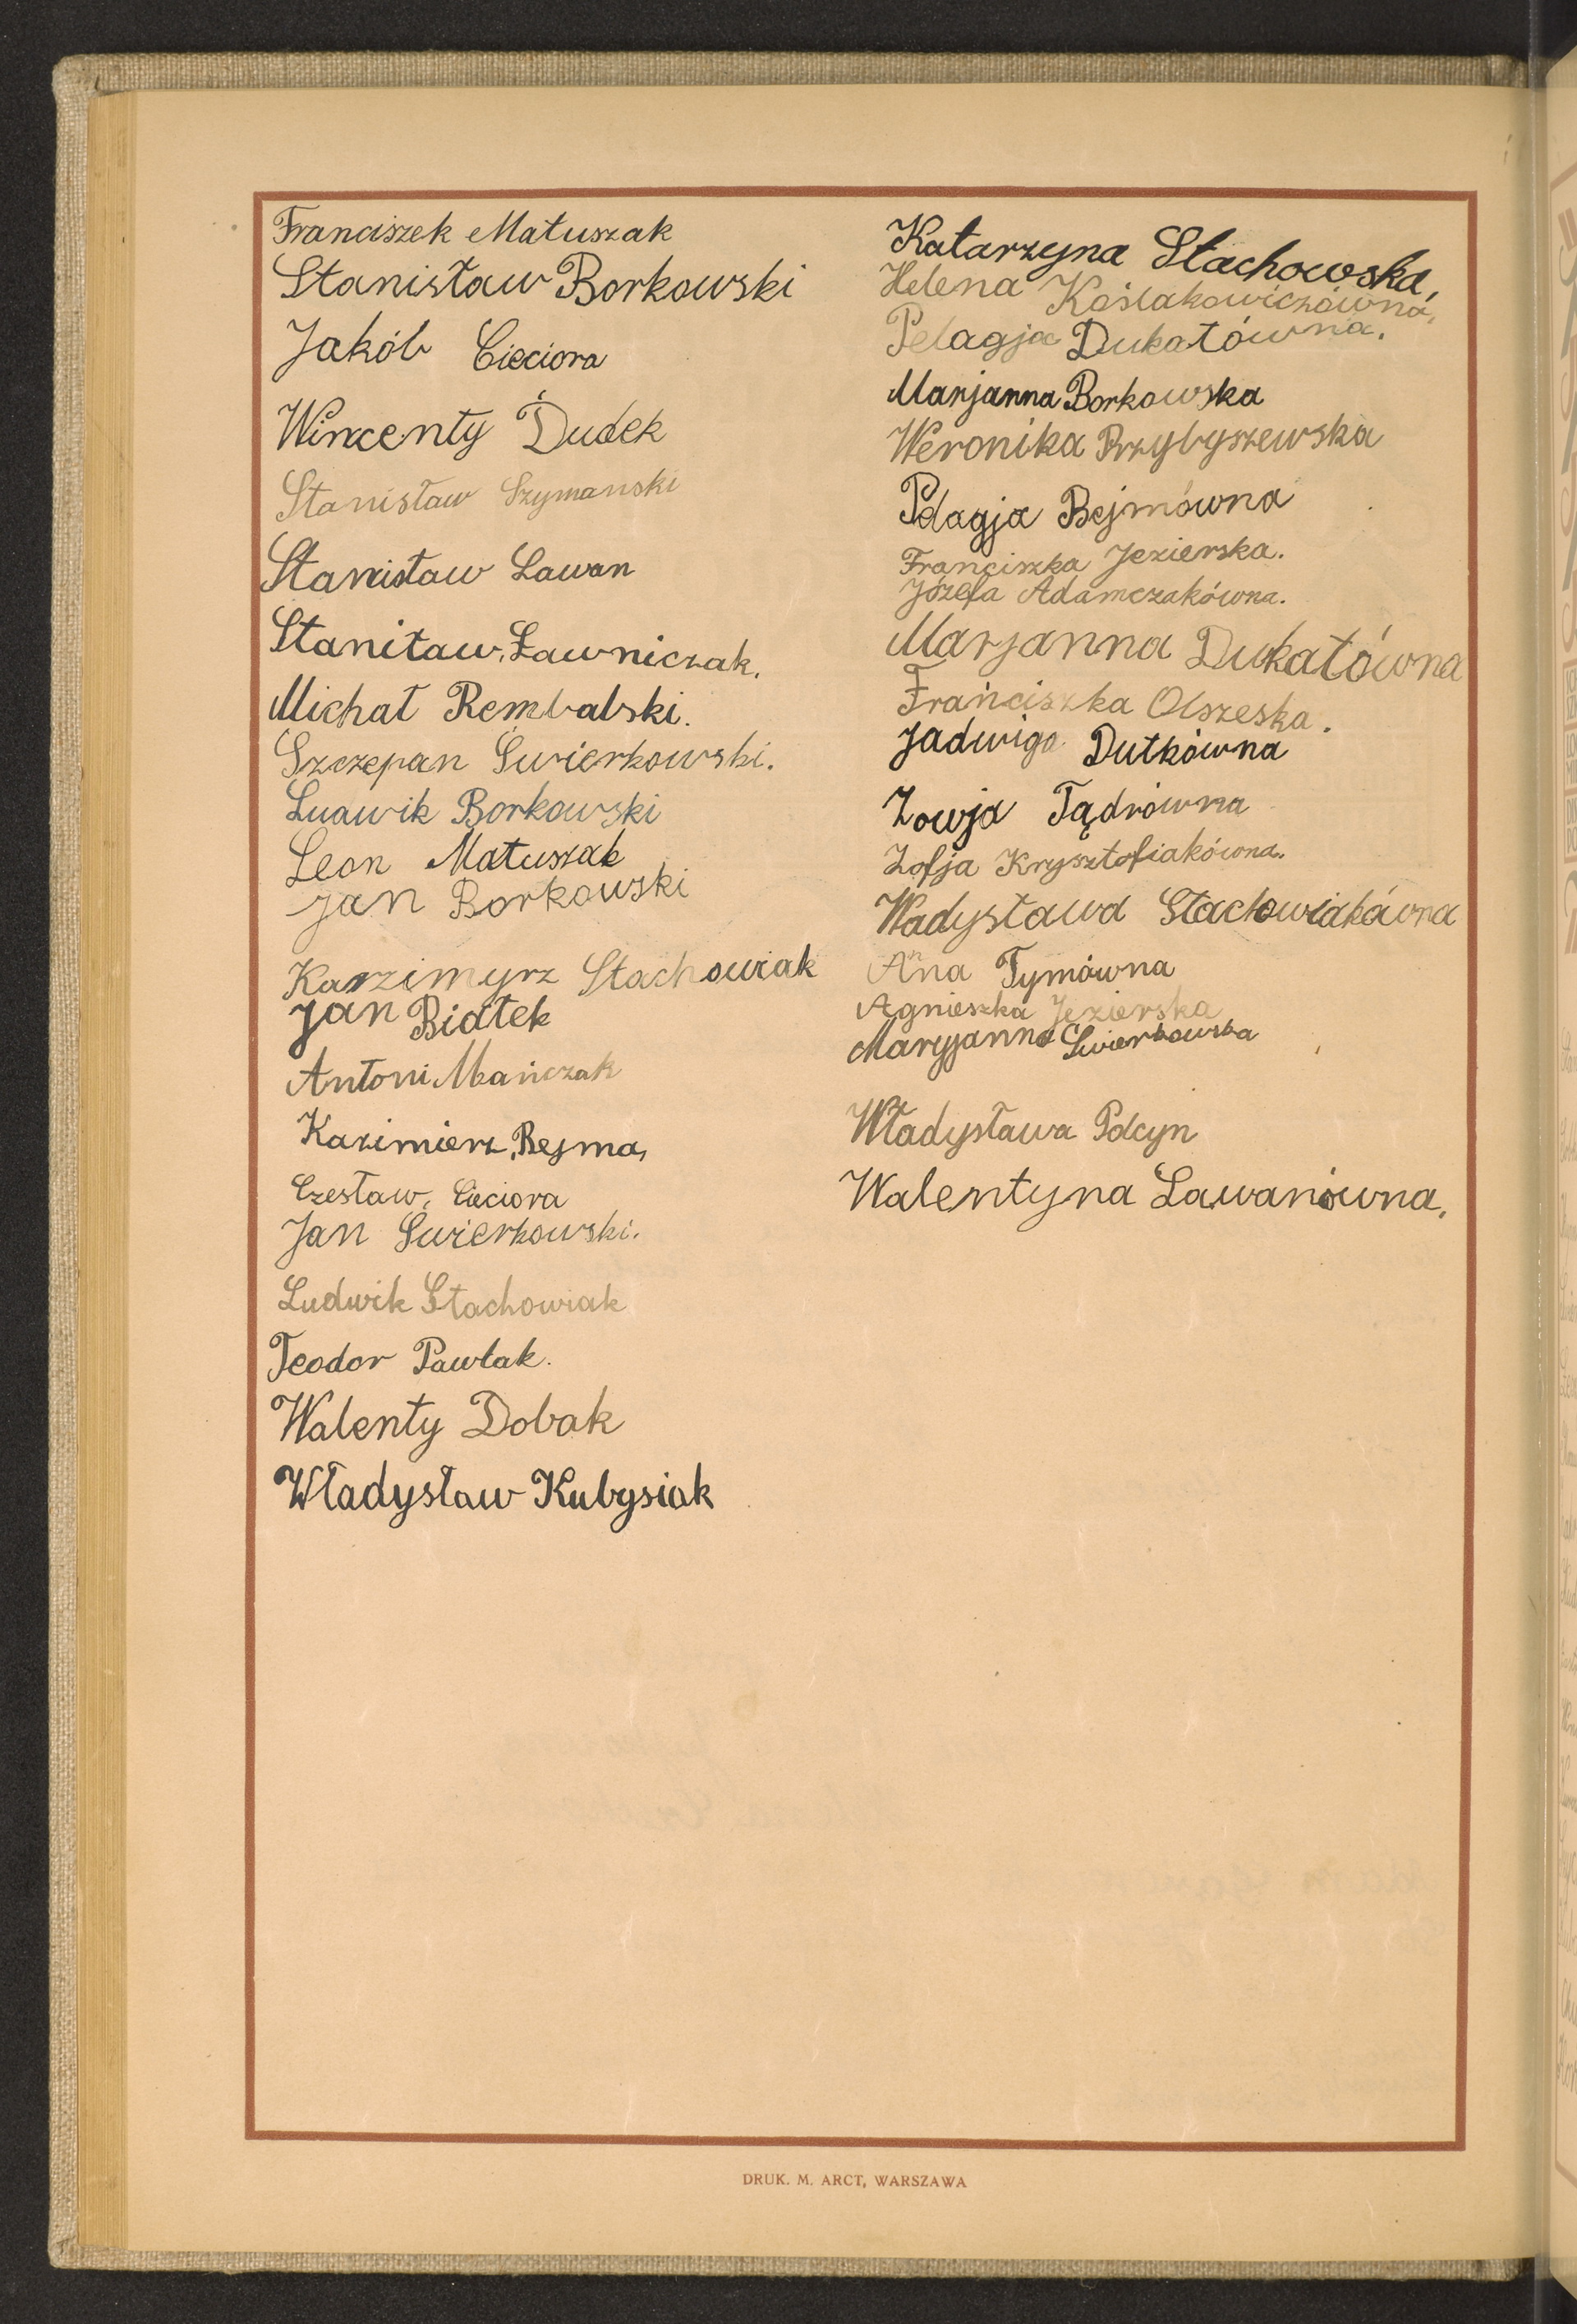 Franciszek Matuszak
Stanisław Borkowski
Jakób Cieciora
Wincenty Dudek
Stanisław Szymanski
Stanisław Lawan
Stanitaw, Ławniczak.
Michał Rembalski.
Szczepan Swierkowski.
Luawik Borkowski
Leon Matuszak
Jan Borkowski
Karzimyrz Stachowiak
Jan Białek
Antoni Mańczak
Kazimierz, Bejma,
Czesław, Cieciora
Jan Swierkowski.
Ludwik Stachowiak
Teodor Pawlak.
Walenty Dobak
Władysław Kubysiak
Katarzyna Stachowska,
Helena Koślakowiczówna,
Pelagja Dukatówna.
Marjanna Borkowska
Weronika Przybyszewska
Pelagja Bejmówna
Franciszka Jezierska.
Józefa Adamczakówna.
Marjanna Dukatówna
Franciszka Olszeska.
Jadwiga Dutkówna
Zowja Tądrówna
Zofja Krysztofiakówna.
Wadysława Stachowiakówna
Anna Tymówna
Agnieszka Jezierska
Maryjanna Swierkowska
Władysława Polcyn
Walentyna Lawanówna,
DRUK. M. ARCT, WARSZAWA